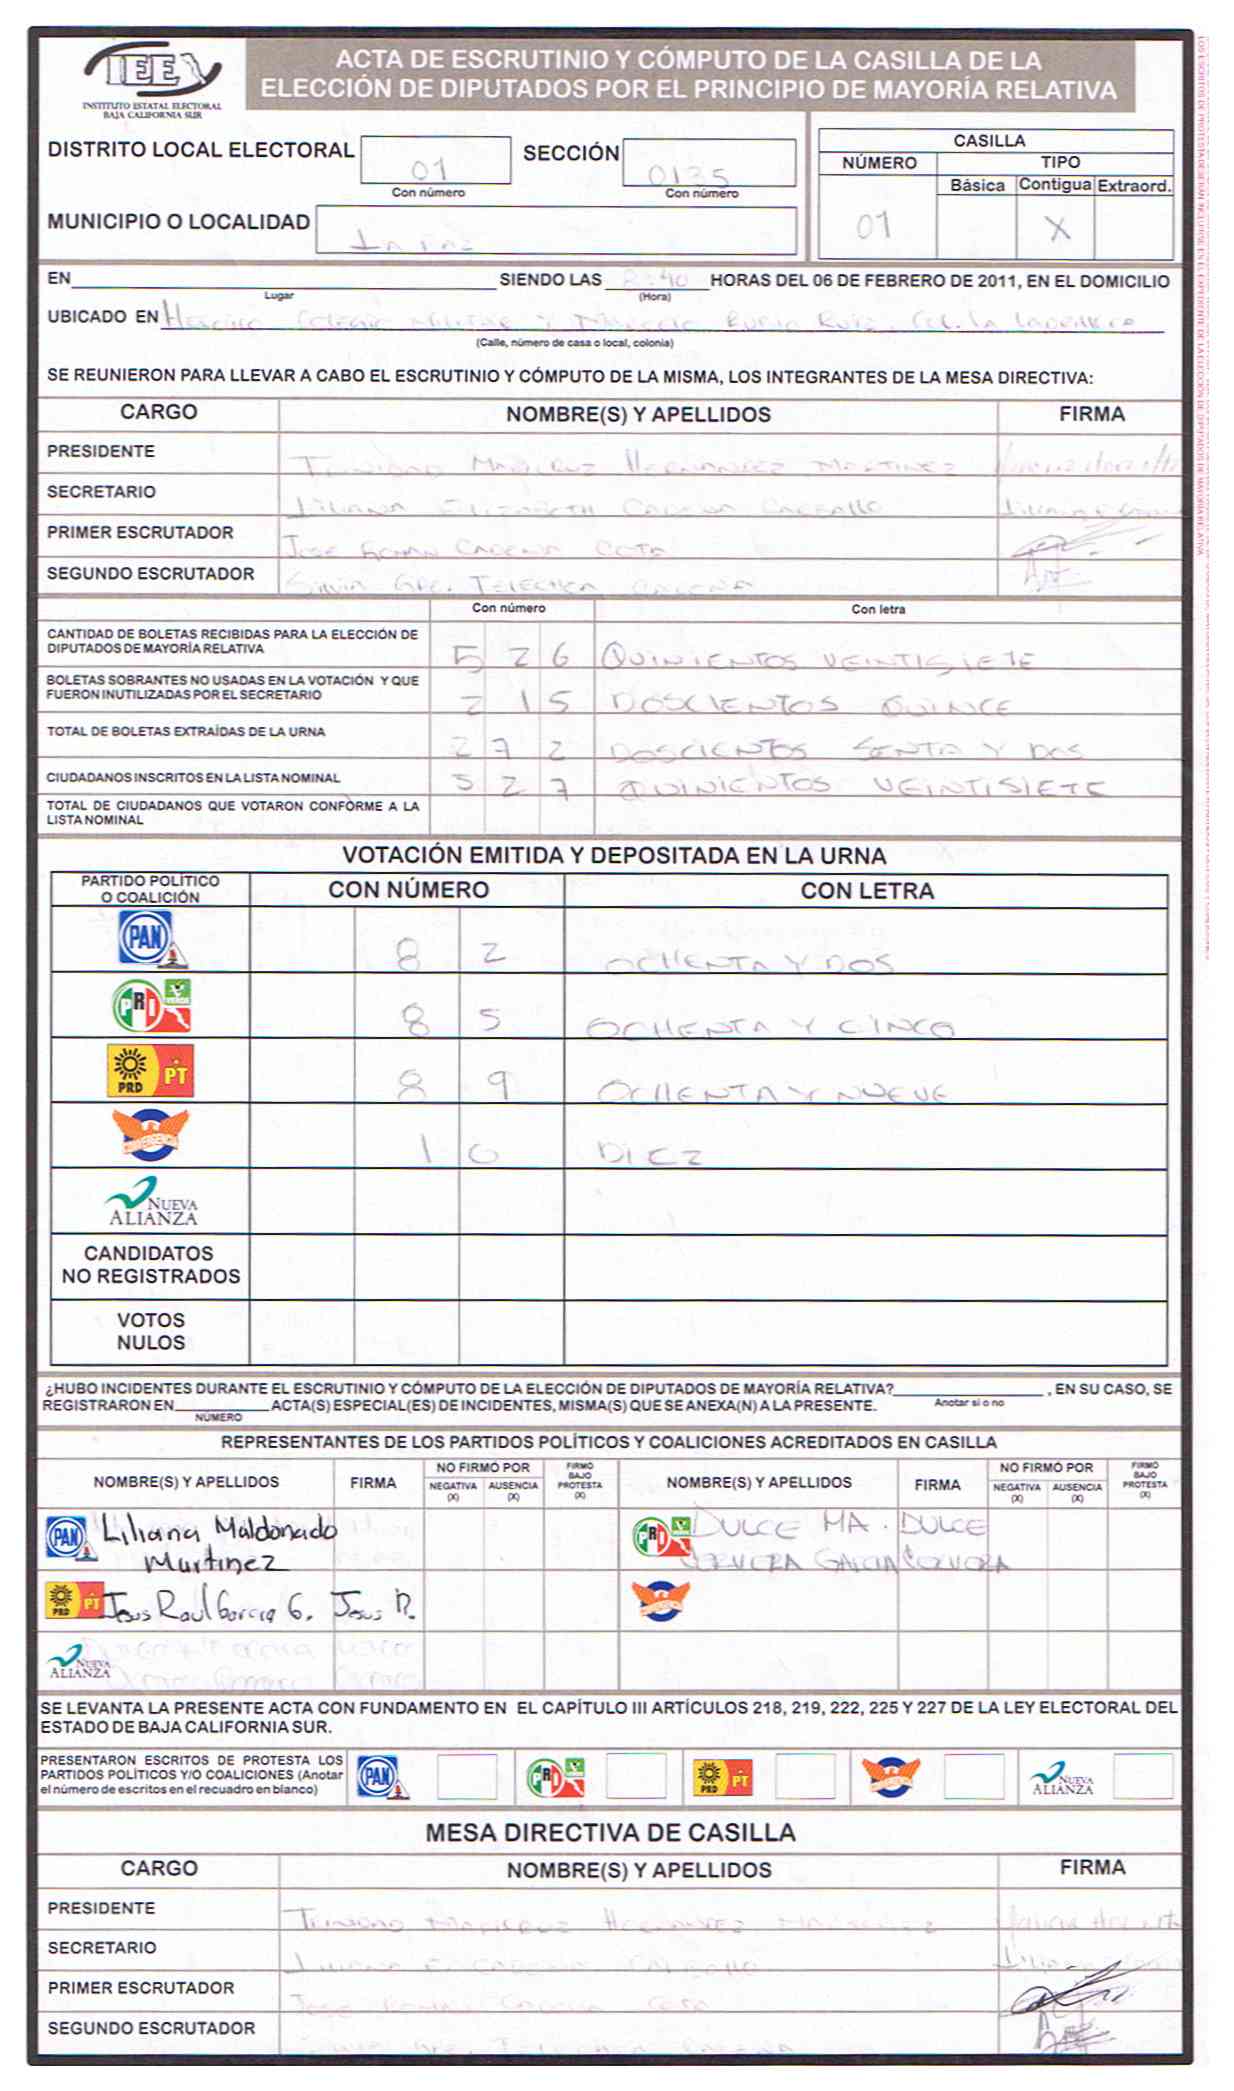 IEE
INSTITUTO ESTATAL ELECTORAL
BAJA CALIFORNIA SUR
ACTA DE ESCRUTINIO Y CÓMPUTO DE LA CASILLA DE LA
ELECCIÓN DE DIPUTADOS POR EL PRINCIPIO DE MAYORÍA RELATIVA
DISTRITO LOCAL ELECTORAL 01 SECCIÓN 0135
Con número Con número
MUNICIPIO O LOCALIDAD LA PAZ
CASILLA
NÚMERO TIPO
Básica Contigua Extraord.
01 X
EN SIENDO LAS 8:40 HORAS DEL 06 DE FEBRERO DE 2011, EN EL DOMICILIO
Lugar (Hora)
UBICADO EN HEROICO COLEGIO MILITAR Y RUBIO RUIZ, COL. LA LADRILLERA
(Calle, número de casa o local, colonia)
SE REUNIERON PARA LLEVAR A CABO EL ESCRUTINIO Y CÓMPUTO DE LA MISMA, LOS INTEGRANTES DE LA MESA DIRECTIVA:
CARGO NOMBRE(S) Y APELLIDOS FIRMA
PRESIDENTE TRINIDAD MARICRUZ HERNANDEZ MARTINEZ
SECRETARIO LILIANA ELIZABETH CADENA CARBALLO
PRIMER ESCRUTADOR JOSE ROMAN CADENA COTA
SEGUNDO ESCRUTADOR SILVIA GPE. TELECHEA CADENA
Con número Con letra
CANTIDAD DE BOLETAS RECIBIDAS PARA LA ELECCIÓN DE
DIPUTADOS DE MAYORÍA RELATIVA 5 2 6 QUINIENTOS VEINTISIETE
BOLETAS SOBRANTES NO USADAS EN LA VOTACIÓN Y QUE
FUERON INUTILIZADAS POR EL SECRETARIO 2 1 5 DOSCIENTOS QUINCE
TOTAL DE BOLETAS EXTRAÍDAS DE LA URNA 2 7 2 DOSCIENTOS SENTA Y DOS
CIUDADANOS INSCRITOS EN LA LISTA NOMINAL 5 2 7 QUINIENTOS VEINTISIETE
TOTAL DE CIUDADANOS QUE VOTARON CONFORME A LA
LISTA NOMINAL
VOTACIÓN EMITIDA Y DEPOSITADA EN LA URNA
PARTIDO POLÍTICO
O COALICIÓN CON NÚMERO CON LETRA
PAN 8 2 OCHENTA Y DOS
PRI VERDE 8 5 OCHENTA Y CINCO
PRD PT 8 9 OCHENTA Y NUEVE
CONVERGENCIA 1 0 DIEZ
NUEVA
ALIANZA
CANDIDATOS
NO REGISTRADOS
VOTOS
NULOS
¿HUBO INCIDENTES DURANTE EL ESCRUTINIO Y CÓMPUTO DE LA ELECCIÓN DE DIPUTADOS DE MAYORÍA RELATIVA? , EN SU CASO, SE
Anotar si o no
REGISTRARON EN ACTA(S) ESPECIAL(ES) DE INCIDENTES, MISMA(S) QUE SE ANEXA(N) A LA PRESENTE.
NÚMERO
REPRESENTANTES DE LOS PARTIDOS POLÍTICOS Y COALICIONES ACREDITADOS EN CASILLA
NOMBRE(S) Y APELLIDOS FIRMA NO FIRMÓ POR NEGATIVA (X) AUSENCIA (X) FIRMÓ BAJO PROTESTA (X) NOMBRE(S) Y APELLIDOS FIRMA NO FIRMÓ POR NEGATIVA (X) AUSENCIA (X) FIRMÓ BAJO PROTESTA (X)
PAN Liliana Maldonado
Martinez
PRI DULCE MA. DULCE
CERVERA GARCIA CERVERA
PRD PT Jesus Raul Garcia G. Jesus R.
NUEVA
ALIANZA
SE LEVANTA LA PRESENTE ACTA CON FUNDAMENTO EN EL CAPÍTULO III ARTÍCULOS 218, 219, 222, 225 Y 227 DE LA LEY ELECTORAL DEL
ESTADO DE BAJA CALIFORNIA SUR.
PRESENTARON ESCRITOS DE PROTESTA LOS
PARTIDOS POLÍTICOS Y/O COALICIONES (Anotar
el número de escritos en el recuadro en blanco)
PAN PRI PRD PT NUEVA ALIANZA
MESA DIRECTIVA DE CASILLA
CARGO NOMBRE(S) Y APELLIDOS FIRMA
PRESIDENTE TRINIDAD MARICRUZ HERNANDEZ MARTINEZ
SECRETARIO LILIANA E. CADENA CARBALLO
PRIMER ESCRUTADOR JOSE ROMAN CADENA COTA
SEGUNDO ESCRUTADOR SILVIA GPE. TELECHEA CADENA